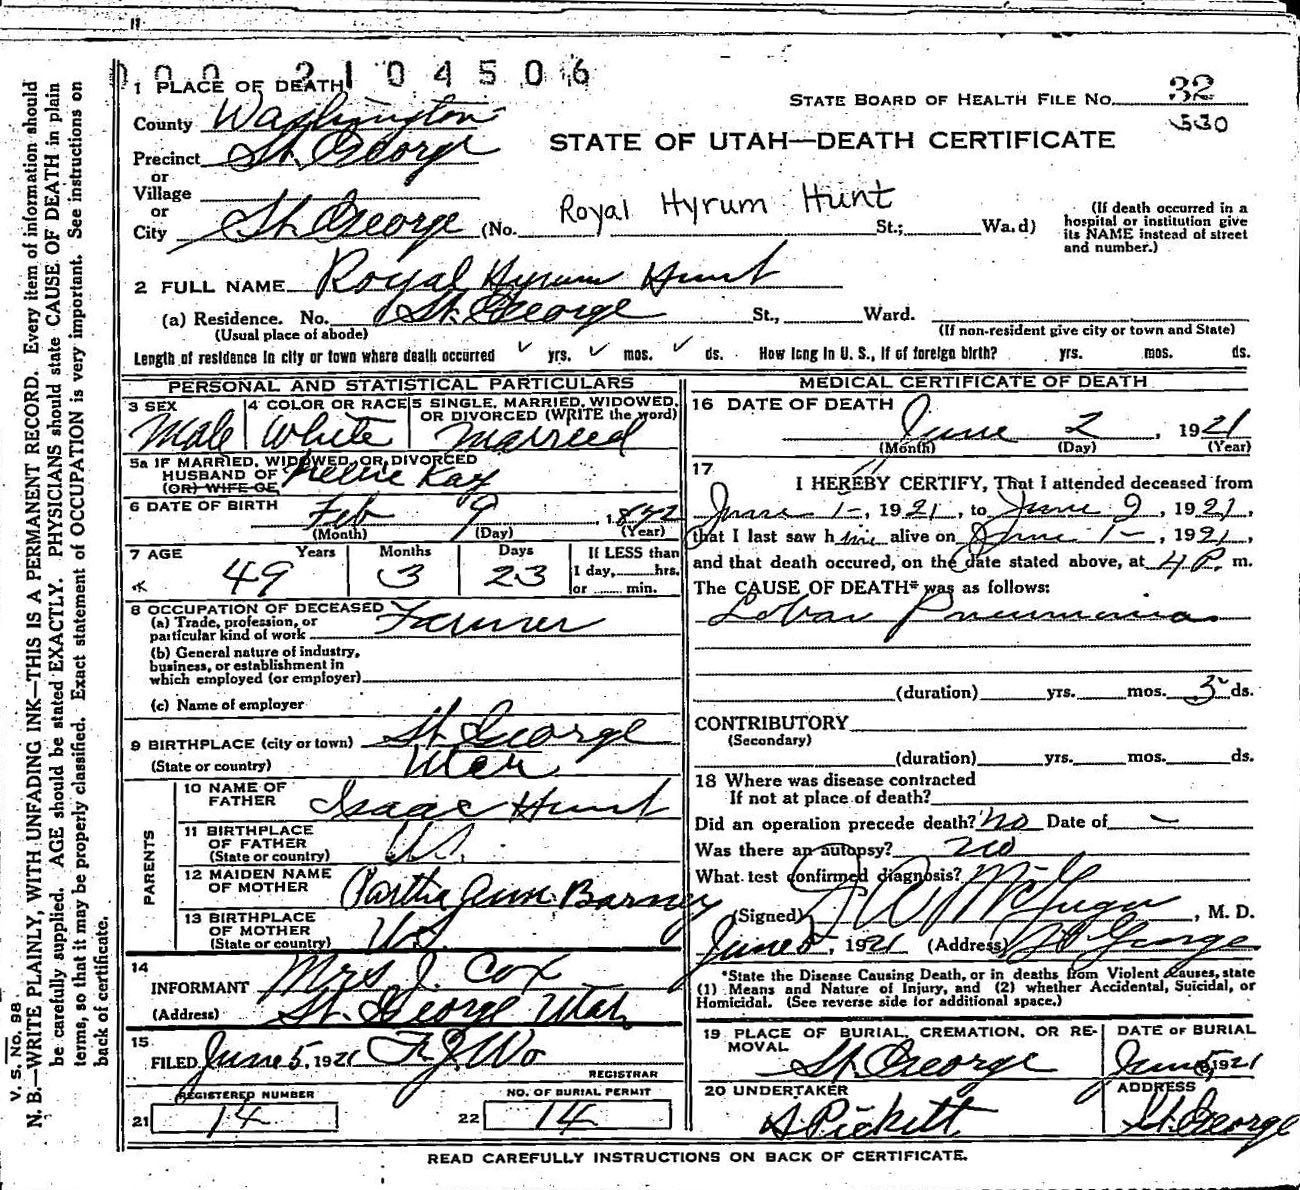 100 2104506
1 PLACE OF DEATH
County Washington
STATE BOARD OF HEALTH FILE No. 32
530
STATE OF UTAH—DEATH CERTIFICATE
Precinct St. George
or
Village
or
City St. George (No. Royal Hyrum Hunt St.; Wa.d)
(If death occurred in a
hospital or institution give
its NAME instead of street
and number.)
2 FULL NAME Royal Hyrum Hunt
(a) Residence. No. St. George St., Ward.
(Usual place of abode)
(If non-resident give city or town and State)
Length of residence in city or town where death occurred ✓ yrs. ✓ mos. ✓ ds. How long in U. S., if of foreign birth? yrs. mos. ds.
PERSONAL AND STATISTICAL PARTICULARS
3 SEX
Male
4 COLOR OR RACE
White
5 SINGLE, MARRIED, WIDOWED,
OR DIVORCED (WRITE the word)
Married
5a IF MARRIED, WIDOWED, OR DIVORCED
HUSBAND OF Kay
(OR) WIFE OF
6 DATE OF BIRTH
Feb 9, 1872
(Month) (Day) (Year)
7 AGE Years Months Days
49 3 23
If LESS than
1 day, hrs.
or min.
8 OCCUPATION OF DECEASED
(a) Trade, profession, or
particular kind of work Farmer
(b) General nature of industry,
business, or establishment in
which employed (or employer)
(c) Name of employer
9 BIRTHPLACE (city or town) St. George
(State or country) Utah
PARENTS
10 NAME OF
FATHER Isaac Hunt
11 BIRTHPLACE
OF FATHER
(State or country) U.S.
12 MAIDEN NAME
OF MOTHER Partha Ann Barney
13 BIRTHPLACE
OF MOTHER
(State or country) U.S.
14
INFORMANT Mrs J. Cox
(Address) St. George Utah
15
FILED June 5, 1921
REGISTRAR
REGISTERED NUMBER
21 14
NO. OF BURIAL PERMIT
22 14
MEDICAL CERTIFICATE OF DEATH
16 DATE OF DEATH
June 2, 1921
(Month) (Day) (Year)
17
I HEREBY CERTIFY, That I attended deceased from
June 1-, 1921, to June 2, 1921,
that I last saw him alive on June 1-, 1921,
and that death occured, on the date stated above, at 4 P. m.
The CAUSE OF DEATH* was as follows:
Lobar Pneumonia
(duration) yrs. mos. 3 ds.
CONTRIBUTORY
(Secondary)
(duration) yrs. mos. ds.
18 Where was disease contracted
If not at place of death?
Did an operation precede death? No Date of —
Was there an autopsy? no
What test confirmed diagnosis?
(Signed) , M. D.
June 5, 1921 (Address) St George
*State the Disease Causing Death, or in deaths from Violent Causes, state
(1) Means and Nature of Injury, and (2) whether Accidental, Suicidal, or
Homicidal. (See reverse side for additional space.)
19 PLACE OF BURIAL, CREMATION, OR RE-
MOVAL St. George
DATE OF BURIAL
June 5 1921
20 UNDERTAKER
S Pickett
ADDRESS
St. George
READ CAREFULLY INSTRUCTIONS ON BACK OF CERTIFICATE.
V. S. No. 98
N. B.—WRITE PLAINLY, WITH UNFADING INK—THIS IS A PERMANENT RECORD. Every item of information should
be carefully supplied. AGE should be stated EXACTLY. PHYSICIANS should state CAUSE OF DEATH in plain
terms, so that it may be properly classified. Exact statement of OCCUPATION is very important. See instructions on
back of certificate.